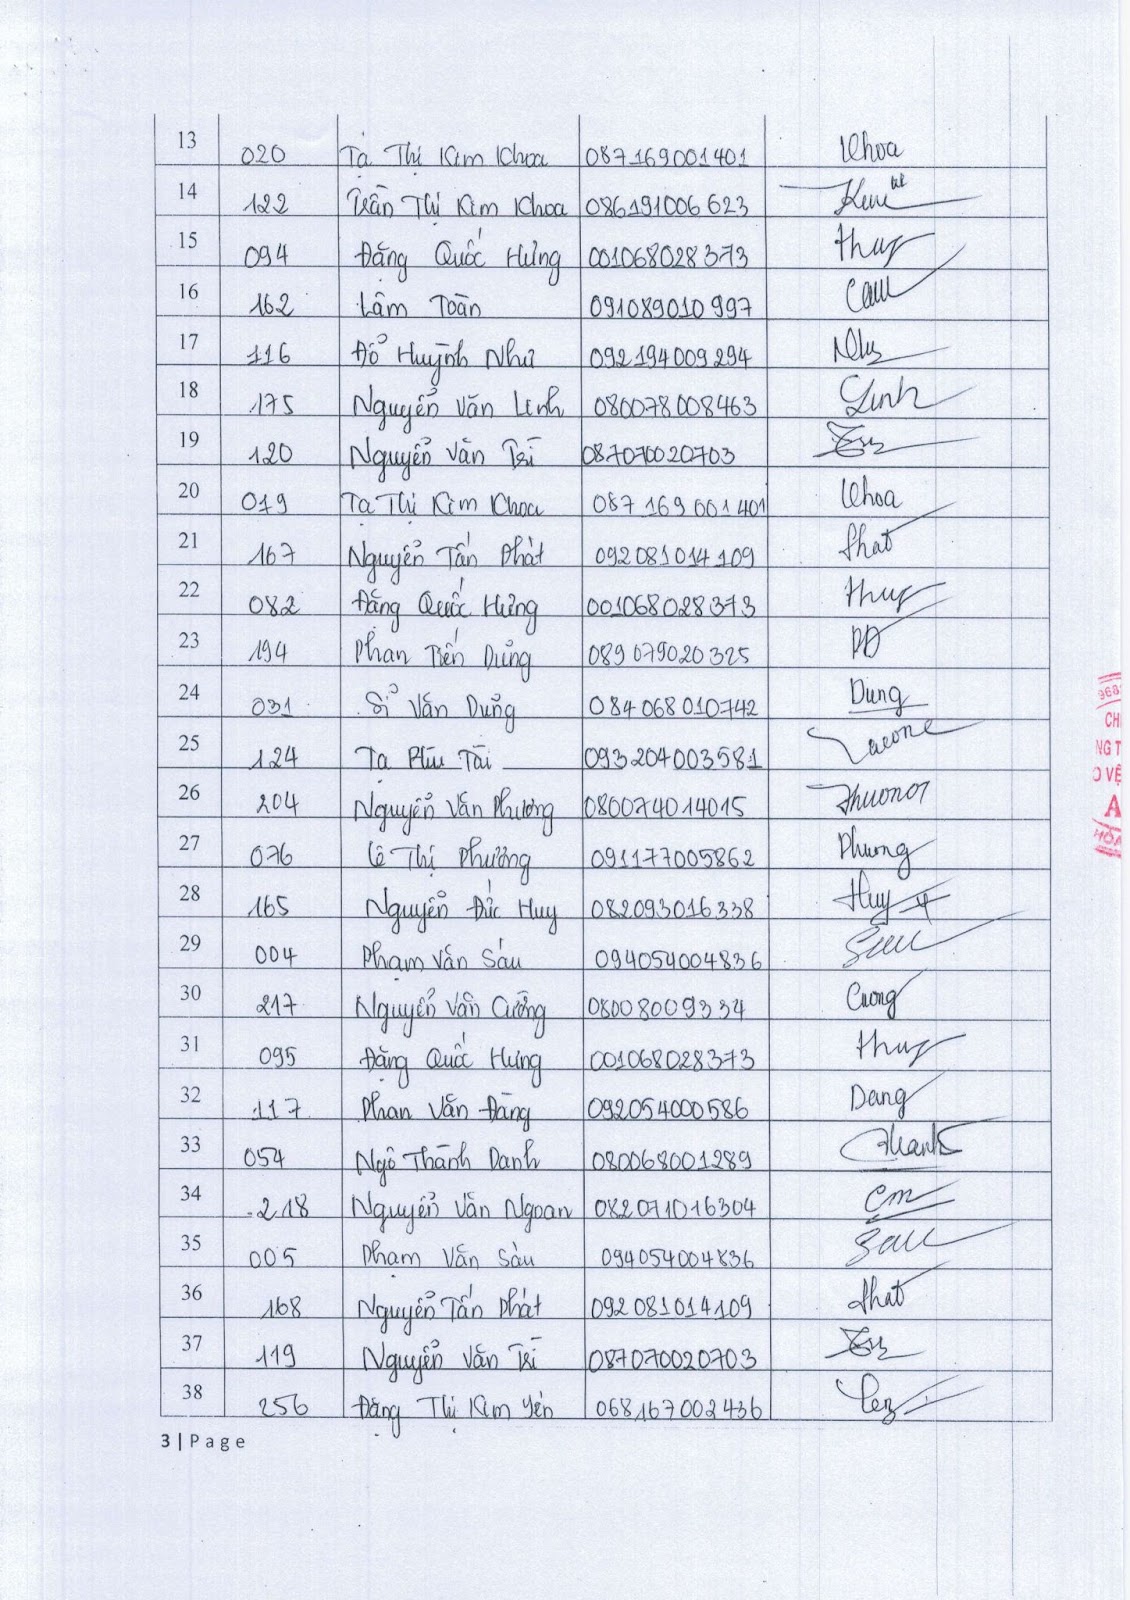 13 020 Tạ Thị Kim Khoa 087169001401 Khoa
14 122 Trần Thị Kim Khoa 086191006623
15 094 Đặng Quốc Hưng 001068028373
16 162 Lâm Toàn 091089010997
17 116 Đổ Huỳnh Như 092194009294 Như
18 175 Nguyễn Văn Linh 080078008463 Linh
19 120 Nguyễn Văn Trí 087070020703
20 019 Tạ Thị Kim Khoa 087169001401 Khoa
21 167 Nguyễn Tấn Phát 092081014109 Phat
22 082 Đặng Quốc Hưng 001068028373
23 194 Phan Tiến Dũng 089079020325 PD
24 031 Sĩ Văn Dũng 084068010742 Dung
25 124 Tạ Phú Tài 093204003581
26 204 Nguyễn Văn Phương 080074014015
27 076 Lê Thị Phường 091177005862 Phuong
28 165 Nguyễn Đức Huy 082093016338 Huy
29 004 Phạm Văn Sáu 094054004836 Sau
30 217 Nguyễn Văn Cường 080080009334 Cuong
31 095 Đặng Quốc Hưng 001068028373
32 117 Phan Văn Đàng 092054000586 Dang
33 054 Ngô Thành Danh 080068001289
34 218 Nguyễn Văn Ngoan 082071016304
35 005 Phạm Văn Sáu 094054004836 Sau
36 168 Nguyễn Tấn Phát 092081014109 Phat
37 119 Nguyễn Văn Trí 087070020703
38 256 Đặng Thị Kim Yến 068167002436
3 | Page